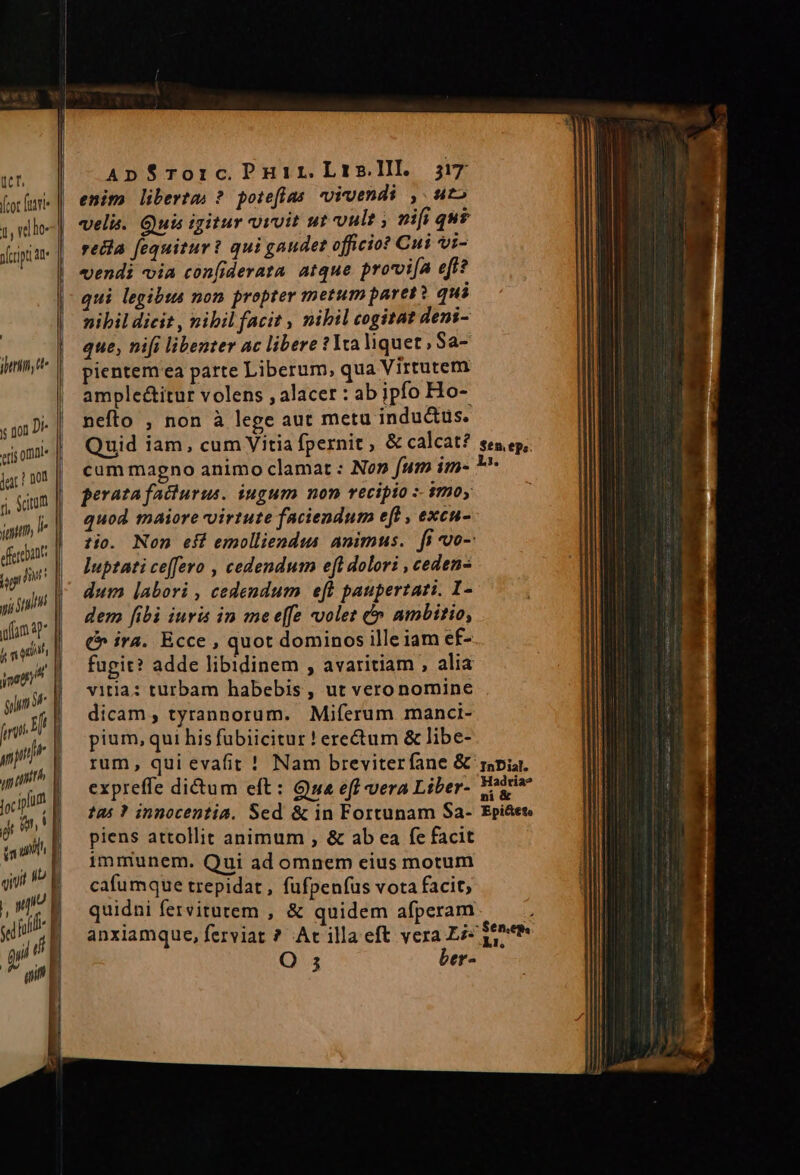 AD STOIC. PHIL. LIB. III. 317
enim libertas? poteſtas vivendi, ut
velis. Quis igitur vivit ut vult, niſi qui
recta ſequitur? qui gaudet officio? Cui vi-
vendi via conſiderata atque proviſa eſt?
qui legibus non propter metum paret? qui
nihil dicit, nihil facit, nihil cogitat deni-
que, niſi libenter ac libere? Ita liquet, Sa-
pientem ea parte Liberum, qua Virtutem
amplectitur volens, alacer: ab ipſo Ho-
neſto, non à lege aut metu inductus.
Quid iam, cum Vitia ſpernit, & calcat?
cum magno animo clamat: Non ſum im-
perata facturus. iugum non recipio: imo,
quod maiore virtute faciendum eſt, excu-
tio. Non eſt emolliendus animus. ſi vo-
luptati ceſſero, cedendum eſt dolori, ceden-
dum labori, cedendum eſt paupertati. I-
dem ſibi iuris in me eſſe volet & ambitio,
& ira. Ecce, quot dominos ille iam ef-
fugit? adde libidinem, avaritiam, alia
vitia: turbam habebis, ut vero nomine
dicam, tyrannorum. Miſerum manci-
pium, qui his ſubiicitur! erectum & libe-
rum, qui evaſit! Nam breviter ſane &
expreſſe dictum eſt: Quæ eſt vera Liber-
tas? innocentia. Sed & in Fortunam Sa-
piens attollit animum, & ab ea ſe facit
immunem. Qui ad omnem eius motum
caſumque trepidat, ſuſpenſus vota facit,
quidni ſervitutem, & quidem aſperam
anxiamque, ſerviat? At illa eſt vera Li-
O 3 ber-
Sen. ep.
LI.
In Dial.
Hadria-
ni &
Epictet.
Sen. ep.
LI.